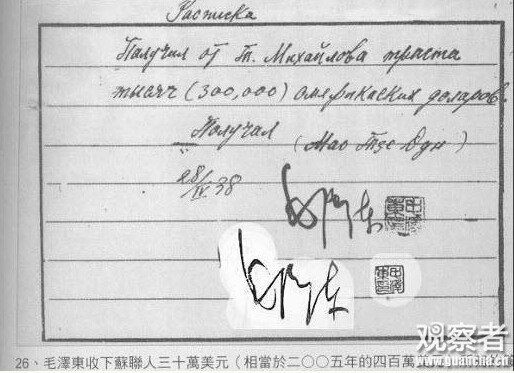 Расписка
Получил от Т. Михайлова триста
тысяч (300,000) америкаских доларов.
Получил (Мао Тзе Дун)
28/IV 38
毛泽东
毛泽东
26、毛澤東收下蘇聯人三十萬美元（相當於二〇〇五年的四百萬
观察者
www.guancha.cn